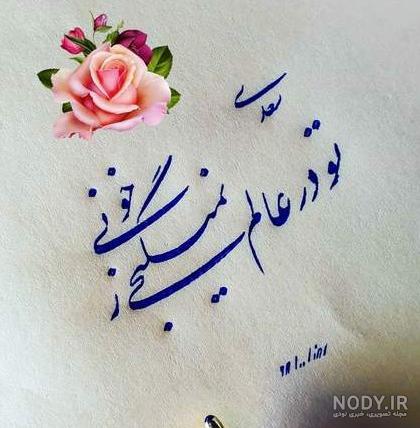 سعدی
تو در عالم نمیگنجی ز خوبی
NODY.IR
مجله تصویری، خبری نودی